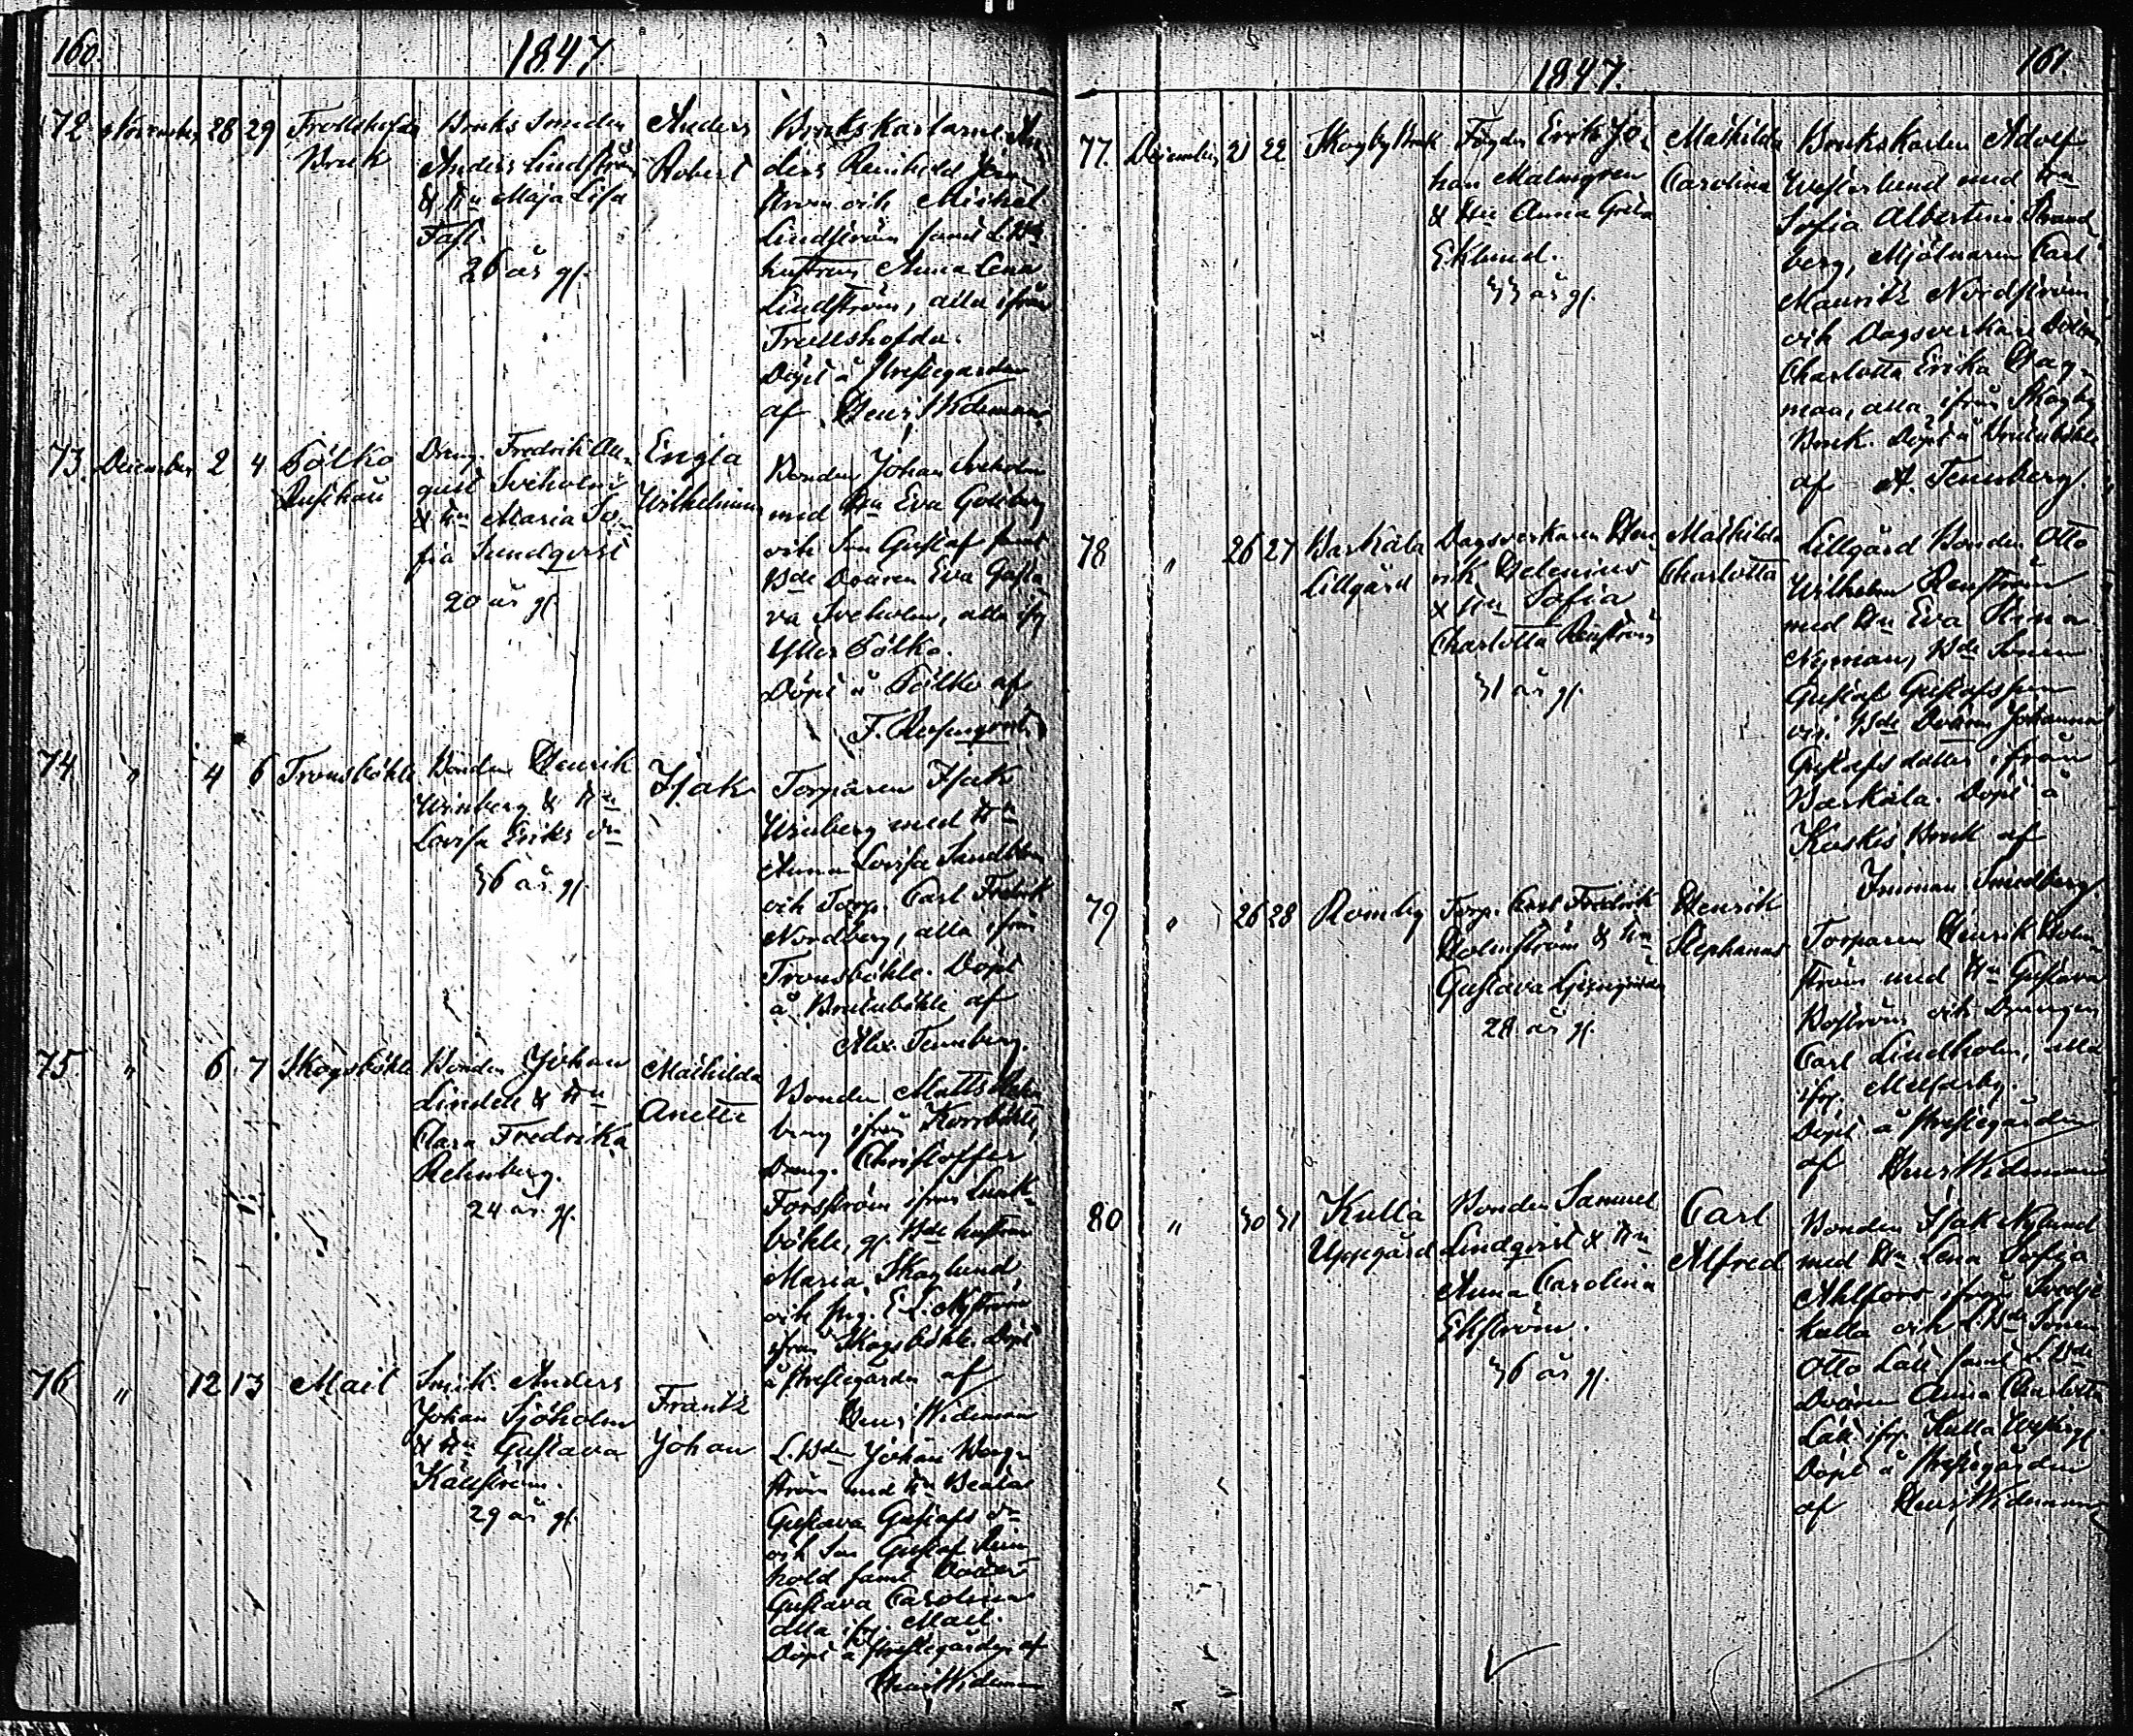 160.
1847
72 November 28 29 Trollshofda
Bruk
Bruks Smeden
Anders Lindström
& Hu Maja Lisa
Fast.
26 år gl.
Anders
Robert
Brukskarlarne An
ders Reinhold
ström och Michel
Lindström samt
hustrun Anna Lena
Lindström, alla ifrån
Trollshofda.
Döpt å Prestegården
af Henr. Wideman
73 December 2 4 Gölko
Dreng. Fredrik Au
gust Sveholm
& Hu Maria So
fia Sundqvist
20 år gl.
Engla
Wilhelmina
Bonden Johan Sveholm
med Hu Eva
och Son Gustaf samt
Bde Dottren Eva Gusta
va Sveholm, alla ifr
Gölko.
Döpt å Gölko af
F. Rosenqvist
74 " 4 6 Tronsböhle
Bonden Henrik
Winberg & Hu
Lovisa Eriks dr
36 år gl.
Isak
Torparen Isak
Winberg med Hu
Anna Lovisa
och Torp. Carl Fredrik
Nordberg, alla ifrån
Tronsböhle. Döpt
å af
Alex. Tennberg.
75. " 6 7 Skogsböhle
Bonden Johan
Lindell & Hu
Clara Fredrika
Rehnberg.
24 år gl.
Mathilda
Anette
Bonden Matts
berg ifrån
Dreng. Christoffer
Forsström ifrån
böhle, gl. Bde hustrun
Maria Skoglund,
och pig. E. L. Nyström
ifrån Skogsböhle. Döpt
å Prestegården af
Henr. Wideman
76 " 12 13 Mail
Anders
Johan Sjöholm
& Hu Gustava
Källström.
29 år gl.
Frantz
Johan
L. Bden Johan Weg
ström med Hu Beata
Gustava Gustafs dr
och Son Gustaf Rein
hold samt Dotter
Gustava Carolina
alla ifr. Mail.
Döpt å Prestegården af
Henr. Wideman
161.
1847.
77. December 21 22 Skogby Bruk
Fogden Erik Jo
han Malmgren
& Hu Anna Greta
Eklund.
33 år gl.
Mathilda
Carolina
Brukskarlen Adolf
Westerlund med Hu
Sofia Albertina Strand
berg, Mjölnaren Carl
Mauritz Nordström
och Dagsverkare Dottren
Charlotta Erika Hag
man, alla ifrån Skogby
Bruk. Döpt å
af A. Tennberg.
78 " 26 27 Baskala
Lillgård
Dagsverkaren Hen
rik Helenius
& Hu Sofia
Charlotta Renström
31 år gl.
Mathilda
Charlotta
Lillgård Bonden Otto
Wilhelm Renström
med Hu Eva Stina
Nyman, Bde Sonen
Gustaf Gustafsson
och Bde Dottren Johanna
Gustafs dotter, ifrån
Baskala. Döpt å
Koskis Bruk af
Smedberg
79 " 26 28 Romby
Torp. Carl Fredrik
Holmström & Hu
Gustava
28 år gl.
Henrik
Stephanus
Torparen Henrik Holm
ström med Hu Gustava
Boström och Drengen
Carl Lindholm, alla
ifr.
Döpt å Prestegården
af Henr. Wideman
80 " 30 31 Kulla
Uppgård
Bonden Samuel
Lindqvist & Hu
Anna Carolina
Ekström.
36 år gl.
Carl
Alfred
Bonden Isak Nylund
med Hu Lena Sofia
Ahlfors ifrån Svedje
kulla och L. Bde Sonen
Otto Lätt samt L. Bde
Dottren Anna Charlotta
Lätt ifr. Kulla
Döpt å Prestegården
af Henr. Wideman